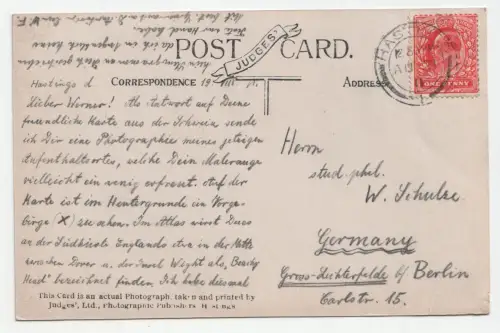 POST CARD.
JUDGES'
CORRESPONDENCE
ADDRESS
HAS
ONE PENNY
Hastings d. 19 VIII
Lieber Werner! Als Antwort auf Deine
freundliche Karte aus der Schweiz sende
ich Dir eine Photographie meines jetzigen
Aufenthaltsortes, welche Dein Malerauge
vielleicht ein wenig erfreut. Auf der
Karte ist im Hintergrunde ein Vorge-
birge (X) zu sehen. Im Atlas wirst Du es
an der Südküste Englands etwa in der Mitte
zwischen Dover u. der Insel Wight als "Beachy
Head" bezeichnet finden. Ich habe diesmal
This Card is an actual Photograph taken and printed by
Judges', Ltd., Photographic Publishers, Hastings
Herrn
stud. phil.
W. Schulze
Germany
Gross-Lichterfelde b/ Berlin
Carlstr. 15.